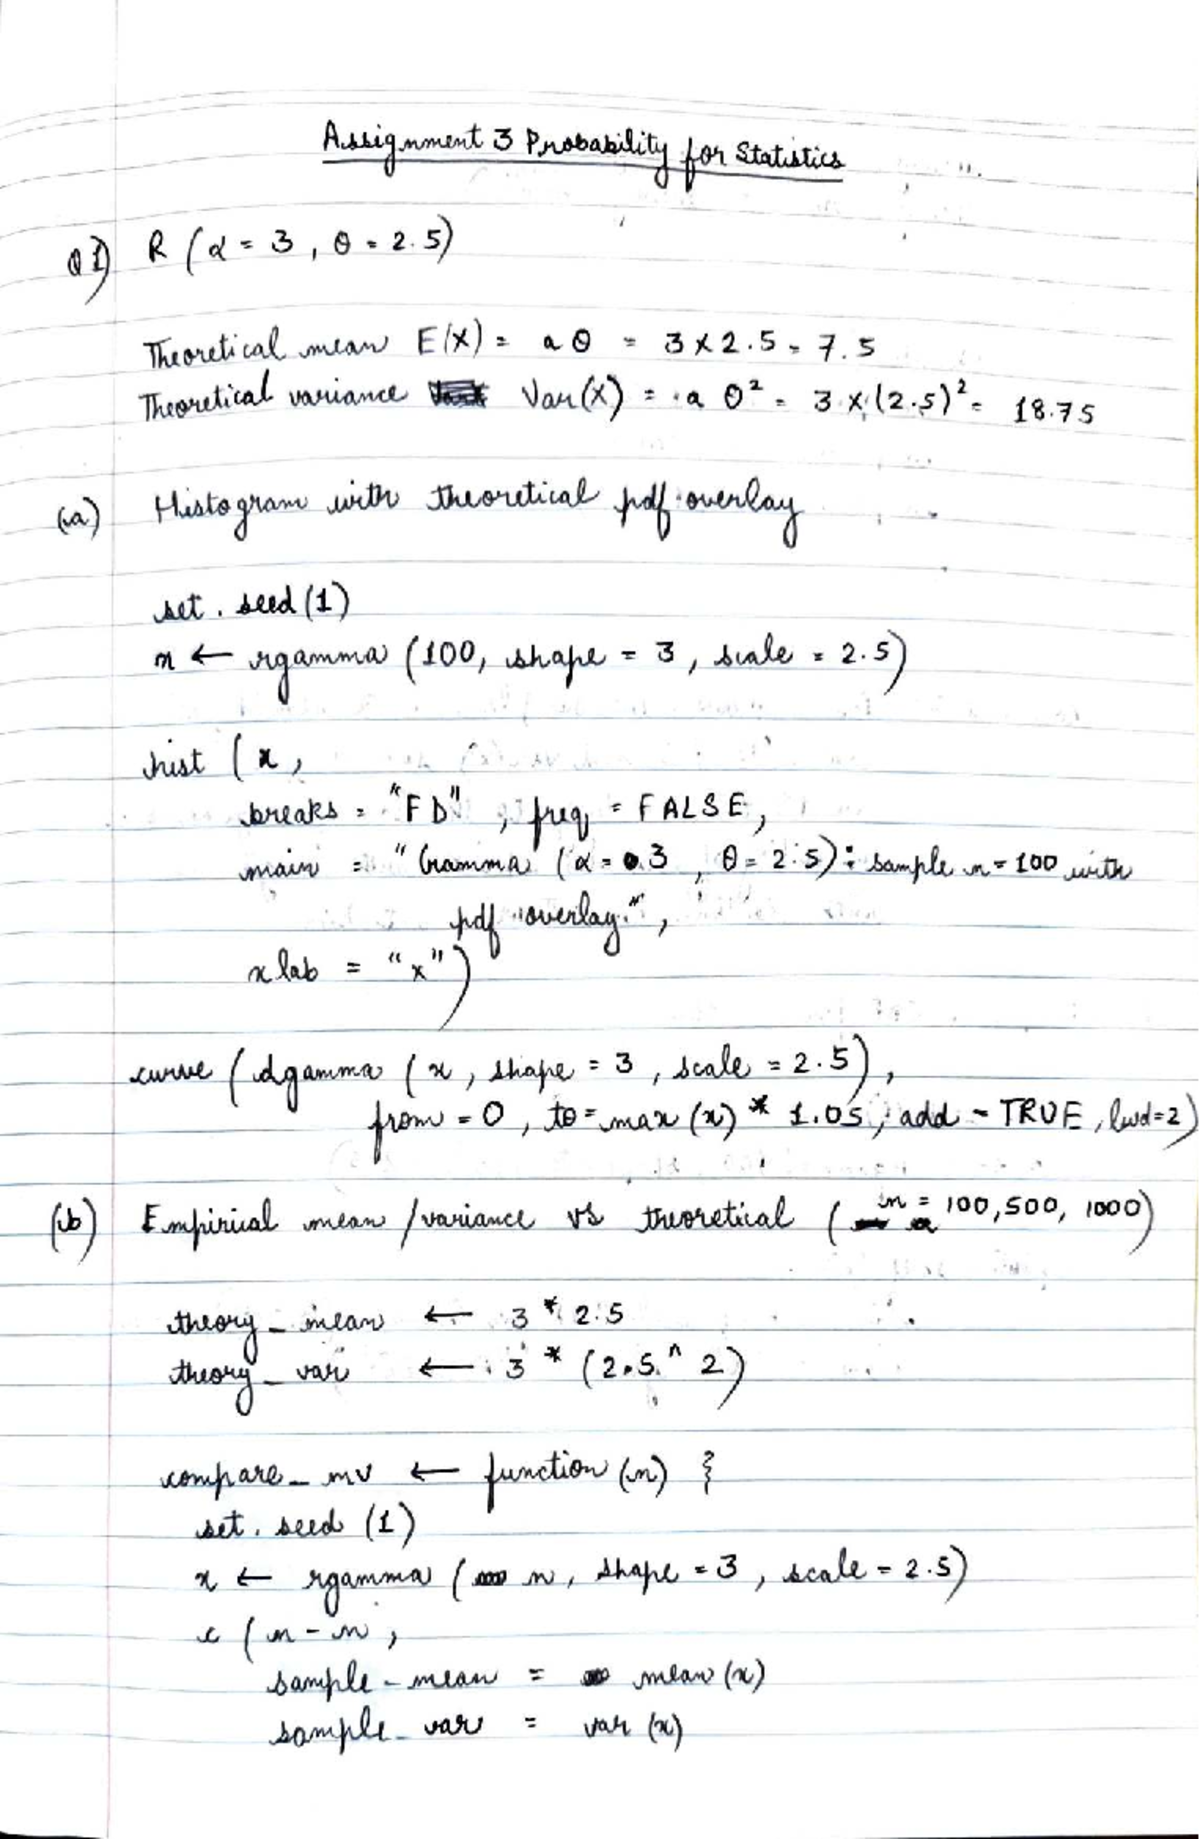 Assignment 3 Probability for Statistics
Q1) R (α = 3, θ = 2.5)
Theoretical mean E(X) = a θ = 3 x 2.5 = 7.5
Theoretical variance Var(X) = a θ² = 3 x (2.5)² = 18.75
(a) Histogram with theoretical pdf overlay
set.seed(1)
x ← rgamma (100, shape = 3, scale = 2.5)
hist (x,
breaks = "FD", freq = FALSE,
main = "Gamma (α = 3, θ = 2.5): sample n = 100 with
pdf overlay",
xlab = "x")
curve (dgamma (x, shape = 3, scale = 2.5),
from = 0, to = max (x) * 1.05, add = TRUE, lwd=2)
(b) Empirical mean/variance vs theoretical (n = 100, 500, 1000)
theory_mean ← 3 * 2.5
theory_var ← 3 * (2.5 ^ 2)
compare_mv ← function (n) {
set.seed (1)
x ← rgamma (n, shape = 3, scale = 2.5)
c (n = n,
sample_mean = mean (x)
sample_var = var (x)